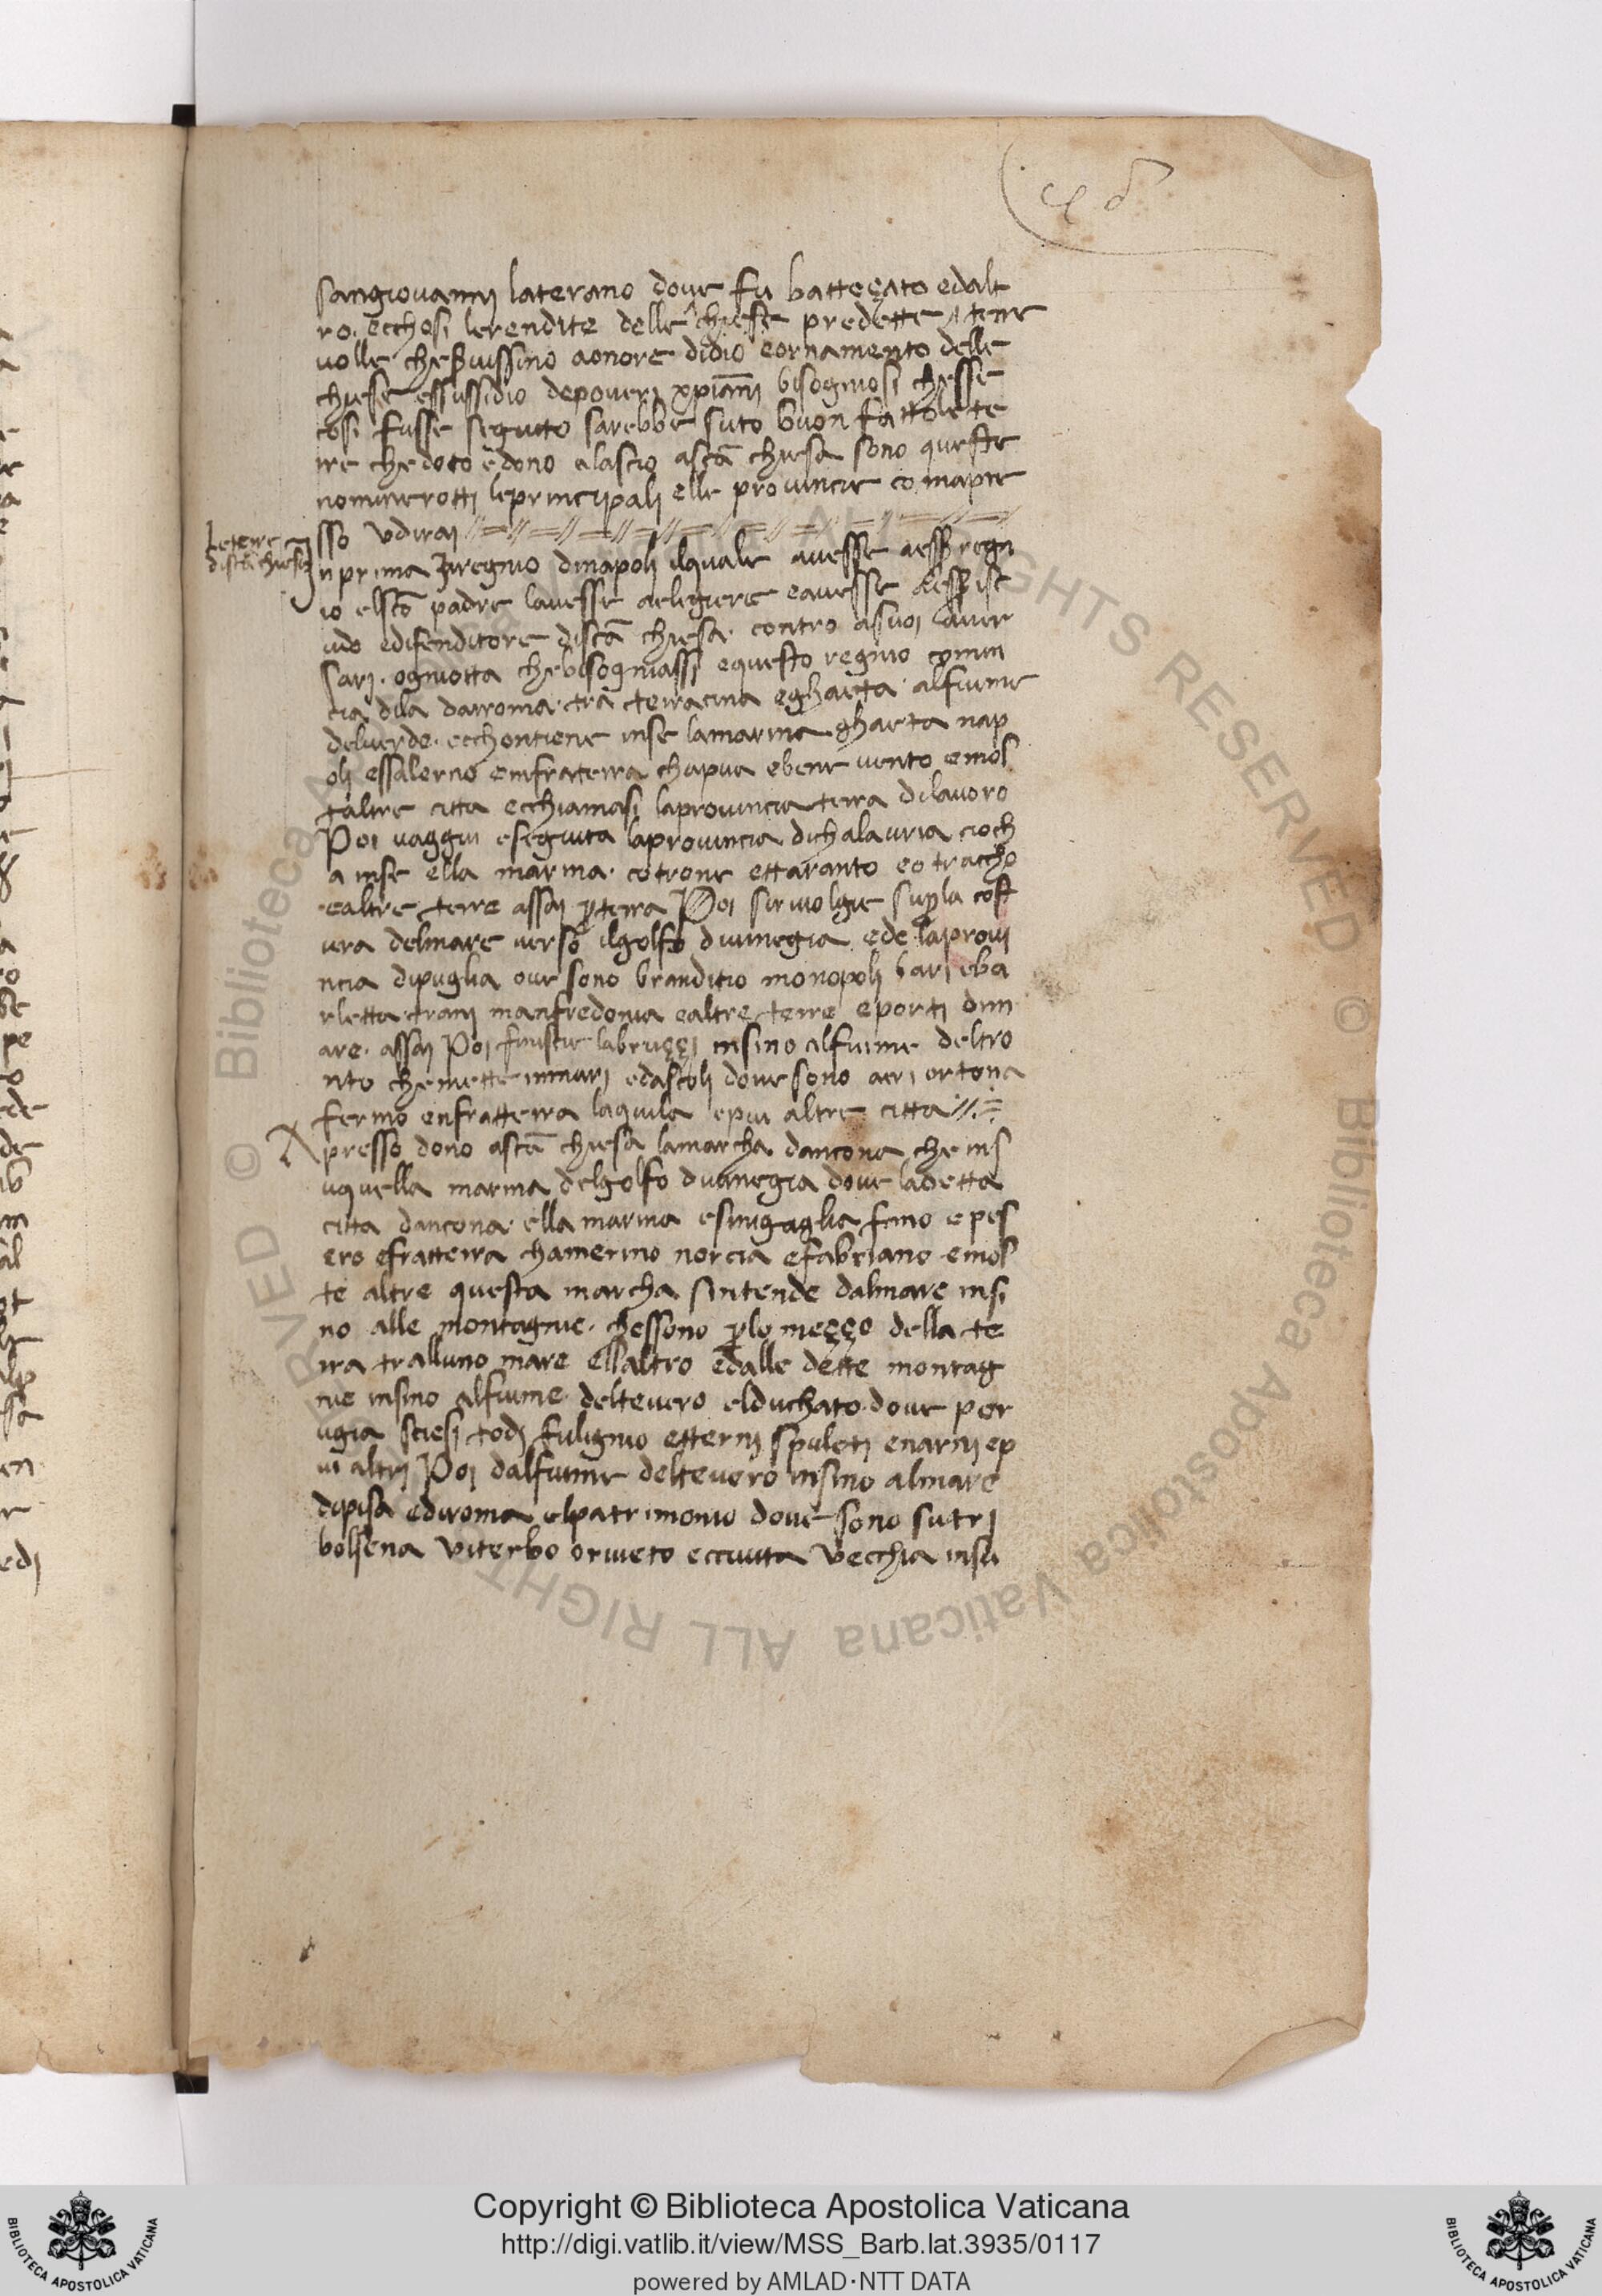 sangiovannj laterano doue fu batteçato edalt
ro. ecchosi lerendite delle chiese predette / terre
uolle cheseruissino aonore didio eornamento delle
chiese essussidio depoueri xpiani bisogniosi chesse
cosi fusse seguito sarebbe suto buon fatto lete
rre chedoto e dono elascio asca chiesa sono queste
nominerotti leprincipali elle prouincie comapre
sso vdirai
Leterre
disca chiesa
Jn prima jlregnio dinapoli ilquale auesse aesser regn
io elsco padre lauesse aeligiere eauesse aesser isc
udo edifenditore disca chiesa. contro asuoi auer
sarj. ogniotta chebisogniassi equesto regnio comin
cia dila darroma. tra terracina eghaetta. alfiume
deluerde. ecchontiene inse lamarina ghaeta nap
oli essalerno enfraterra chapua ebene uento emol
taltre citta ecchiamasi laprouincia terra dilauoro
Poi uaggiu eseguita laprouincia dichalauria cioch
a inse ella marina. cotrone ettaranto eotraccho
ealtre terre assaj per terra Poi siriuolgie su per la cost
iera delmare uerso ilgolfo diuinegia ede laproui
ncia dipuglia oue sono branditio monopoli bari eba
rletta tranj manfredonia ealtre terre eporti dim
are. assaj Poi finiscie labruççi insino alfiume deltro
nto chemette inmarj edascoli doue sono acri ortona
fermo enfratterra laquila epiu altre citta
Apresso dono asca chiesa lamarcha dancona che ins
uquella marina delgolfo diuinegia doue ladetta
citta dancona. ella marina esinigaglia fano epes
ero efraterra chamerino norcia efabriano emol
te altre questa marcha sintende dalmare insi
no alle montagnie. chessono per lo meççο della te
rra tralluno mare ellaltro edalle dette montag
nie insino alfiume. delteuero elduchato. doue per
ugia sciesi todj fulignio etternj spuleti enarnj ep
iu altrj Poi dalfiume delteuero insino almare
dipisa ediroma elpatrimonio doue sono sutrj
bolsena viterbo oriueto ecciuita vecchia insu
Copyright © Biblioteca Apostolica Vaticana
http://digi.vatlib.it/view/MSS_Barb.lat.3935/0117
powered by AMLAD·NTT DATA
BIBLIOTECA APOSTOLICA VATICANA
BIBLIOTECA APOSTOLICA VATICANA
© Biblioteca Apostolica Vaticana ALL RIGHTS RESERVED